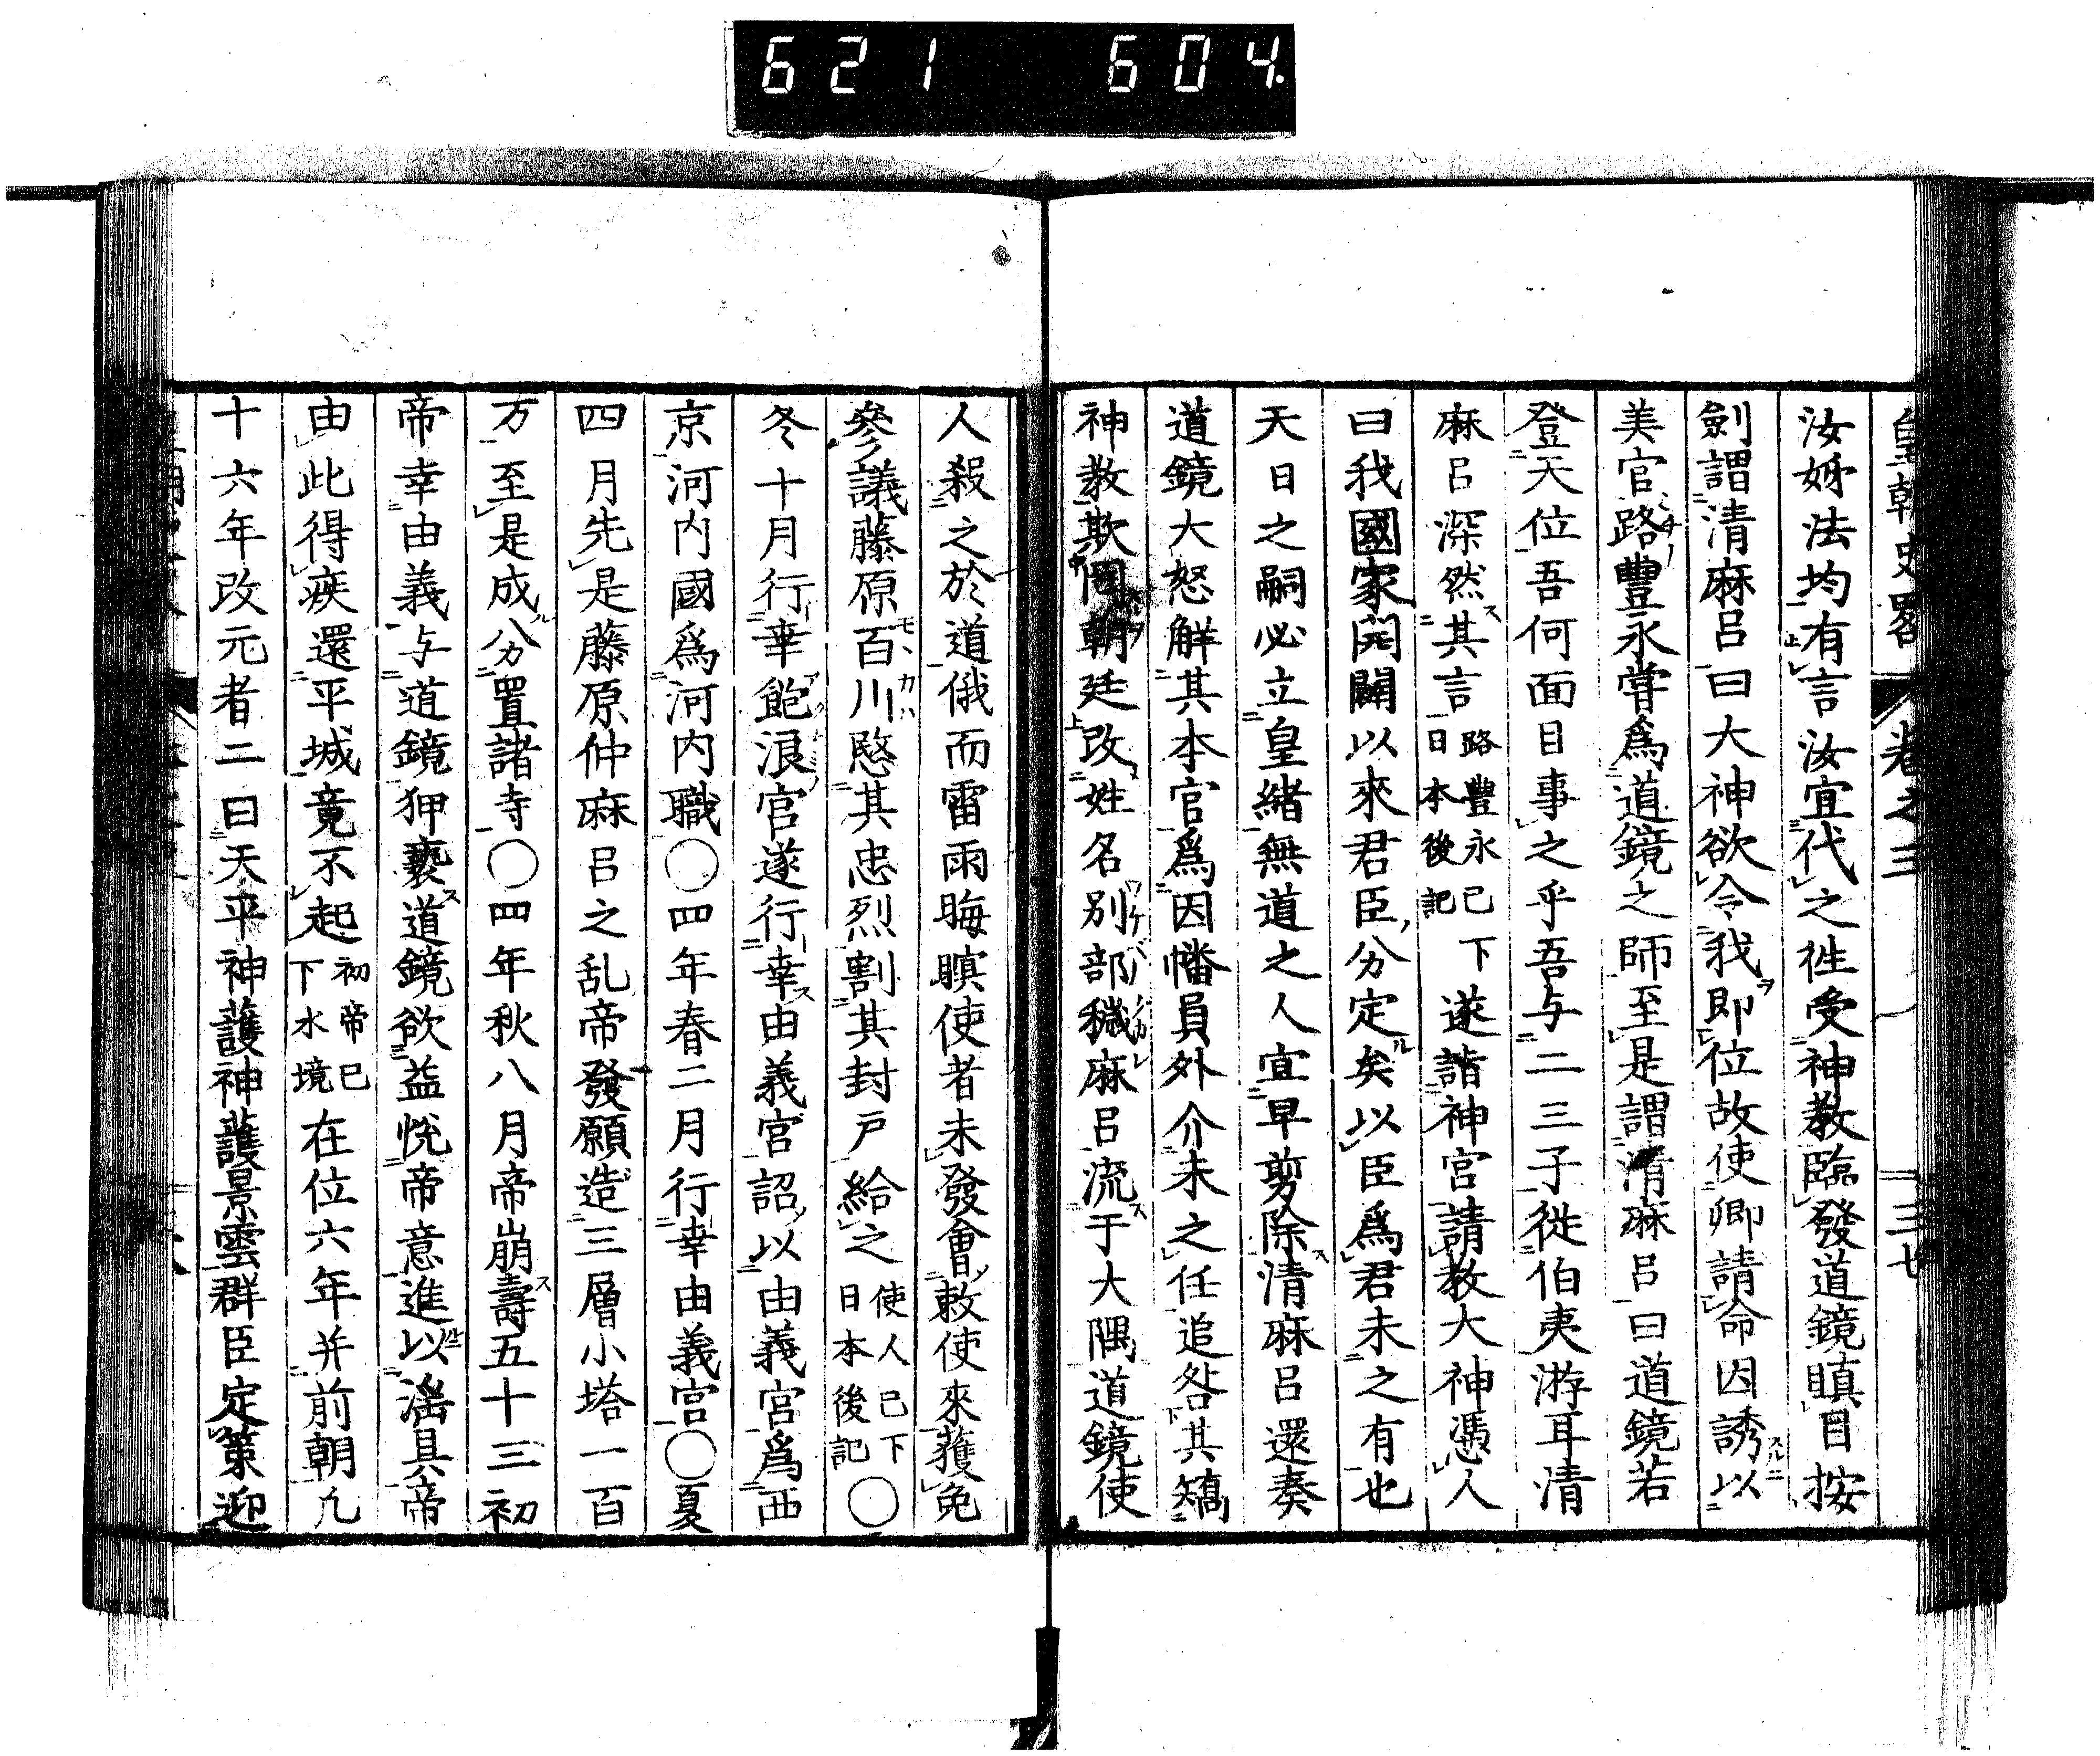 621 604.
皇朝史畧 卷之三 三七
汝姊法均有言汝宜代之徃受神教臨發道鏡瞋目按
劍謂清麻呂曰大神欲令我即位故使卿請命因誘以
美官路豐永嘗爲道鏡之師至是謂清麻呂曰道鏡若
登天位吾何面目事之乎吾与二三子從伯夷游耳清
麻呂深然其言路豐永已下日本後記遂詣神宮請教大神憑人
曰我國家開闢以來君臣分定矣以臣爲君未之有也
天日之嗣必立皇緒無道之人宜早剪除清麻呂還奏
道鏡大怒解其本官爲因幡員外介未之任追咎其矯
神教欺罔朝廷改姓名別部穢麻呂流于大隅道鏡使
人殺之於道俄而雷雨晦暝使者未發會敕使來獲免
參議藤原百川愍其忠烈割其封戸給之使人已下日本後記〇
冬十月行幸飽浪宮遂行幸由義宮詔以由義宮爲西
京河内國爲河内職〇四年春二月行幸由義宮〇夏
四月先是藤原仲麻呂之乱帝發願造三層小塔一百
万至是成分置諸寺〇四年秋八月帝崩壽五十三初
帝幸由義与道鏡狎褻道鏡欲益悅帝意進以淫具帝
由此得疾還平城竟不起初帝已下水境在位六年并前朝凡
十六年改元者二曰天平神護神護景雲群臣定策迎